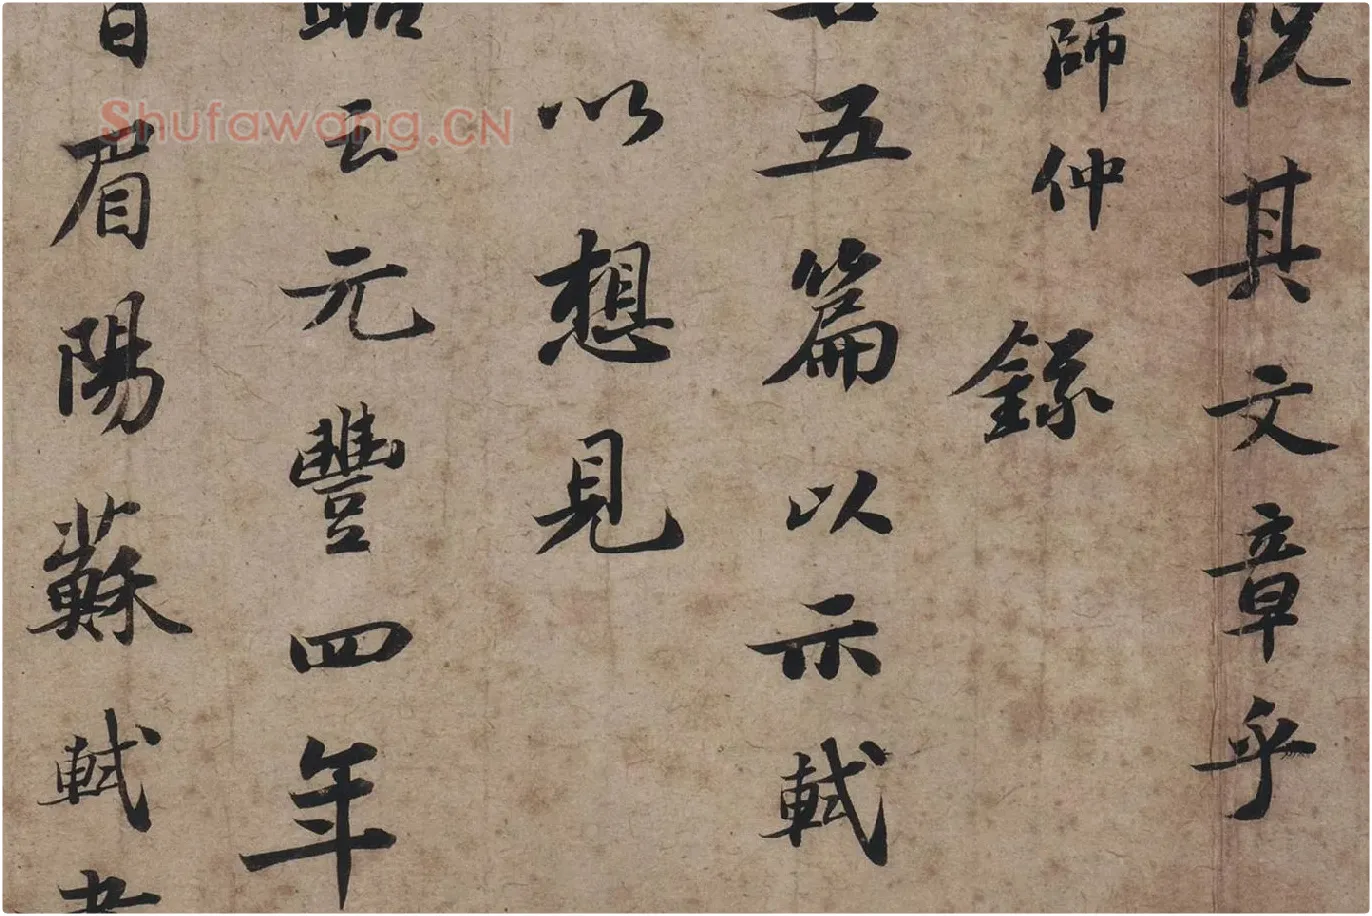 況其文章乎
師仲錄
五篇以示軾
以想見
云元豐四年
眉陽蘇軾書
Shufawang.CN